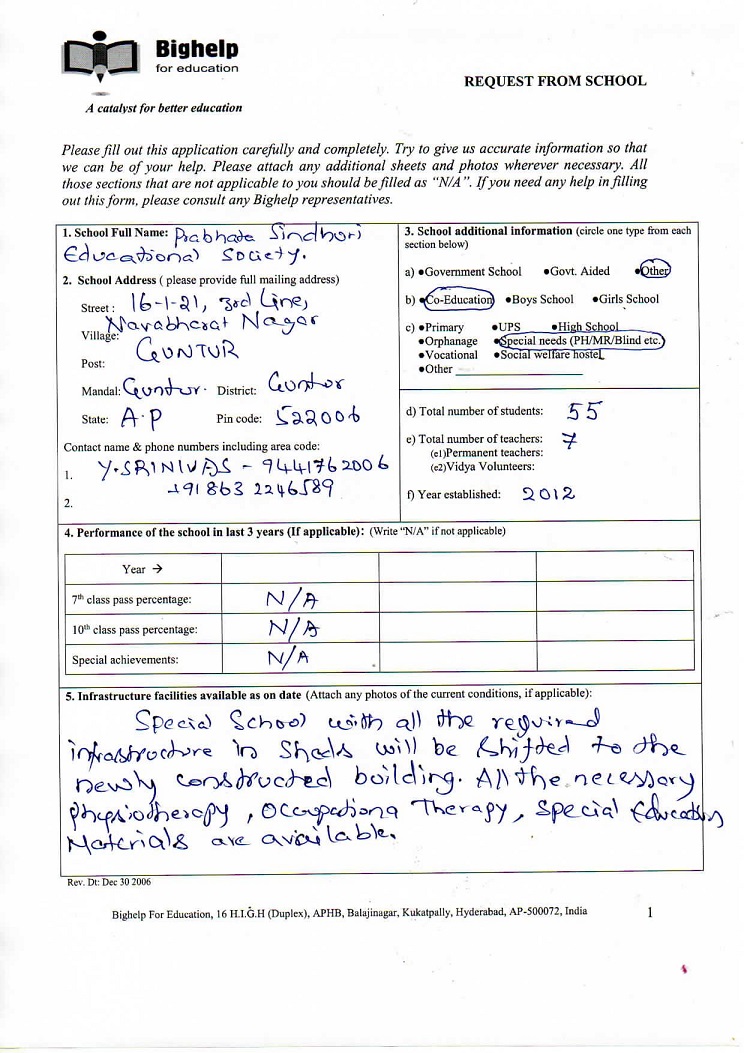 Bighelp
for education
A catalyst for better education
REQUEST FROM SCHOOL
Please fill out this application carefully and completely. Try to give us accurate information so that
we can be of your help. Please attach any additional sheets and photos wherever necessary. All
those sections that are not applicable to you should be filled as "N/A". If you need any help in filling
out this form, please consult any Bighelp representatives.
1. School Full Name: Prabhata Sindhuri
Educational Society.
2. School Address ( please provide full mailing address)
Street : 16-1-21, 3rd Line,
Navabharat Nagar
Village:
GUNTUR
Post:
Mandal: Guntur. District: Guntur
State: A.P Pin code: 522006
Contact name & phone numbers including area code:
1. Y.SRINIVAS - 9441762006
+91 863 2246589
2.
3. School additional information (circle one type from each
section below)
a) •Government School •Govt. Aided •Other
b) •Co-Education •Boys School •Girls School
c) •Primary •UPS •High School
•Orphanage •Special needs (PH/MR/Blind etc.)
•Vocational •Social welfare hostel
•Other
d) Total number of students: 55
e) Total number of teachers: 7
(e1)Permanent teachers:
(e2)Vidya Volunteers:
f) Year established: 2012
4. Performance of the school in last 3 years (If applicable): (Write "N/A" if not applicable)
Year →
7th class pass percentage: N/A
10th class pass percentage: N/A
Special achievements: N/A
5. Infrastructure facilities available as on date (Attach any photos of the current conditions, if applicable):
Special School with all the required
infrastructure in Sheds will be Shifted to the
newly constructed building. All the necessary
physiotherapy, Occupationa Therapy, Special Education
Materials are available.
Rev. Dt: Dec 30 2006
Bighelp For Education, 16 H.I.G.H (Duplex), APHB, Balajinagar, Kukatpally, Hyderabad, AP-500072, India 1